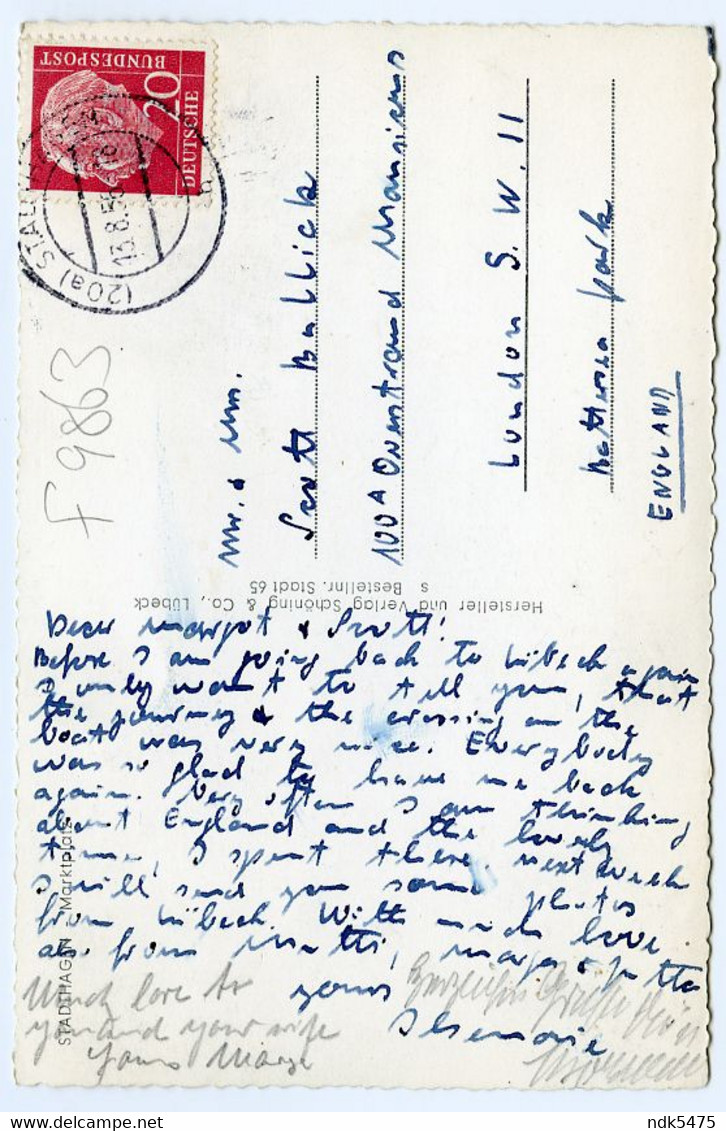 DEUTSCHE
BUNDESPOST
20
(20a) STADTHAGEN
13.8.56
F 9863
Mr. & Mrs.
Scott Bullick
100A Overstrand Mansions
London S.W. 11
Battersea Park
ENGLAND
Hersteller und Verlag Schöning & Co., Lübeck
s Bestellnr. Stadt 65
STADTHAGEN - Marktplatz
Dear Margot & Scott!
Before I am going back to Lübeck again
I only want to tell you, that
the journey & the crossing on the
boat was very nice. Everybody
was so glad to have me back
again. Very often I am thinking
about England and the lovely
time, I spent there. Next week
I will send you some photos
from Lübeck. With much love
also from Mutti,
yours
Ilsemarie
Much love to
you and your wife
Yours Marga
Herzliche Grüße
www.delcampe.net
ndk5475